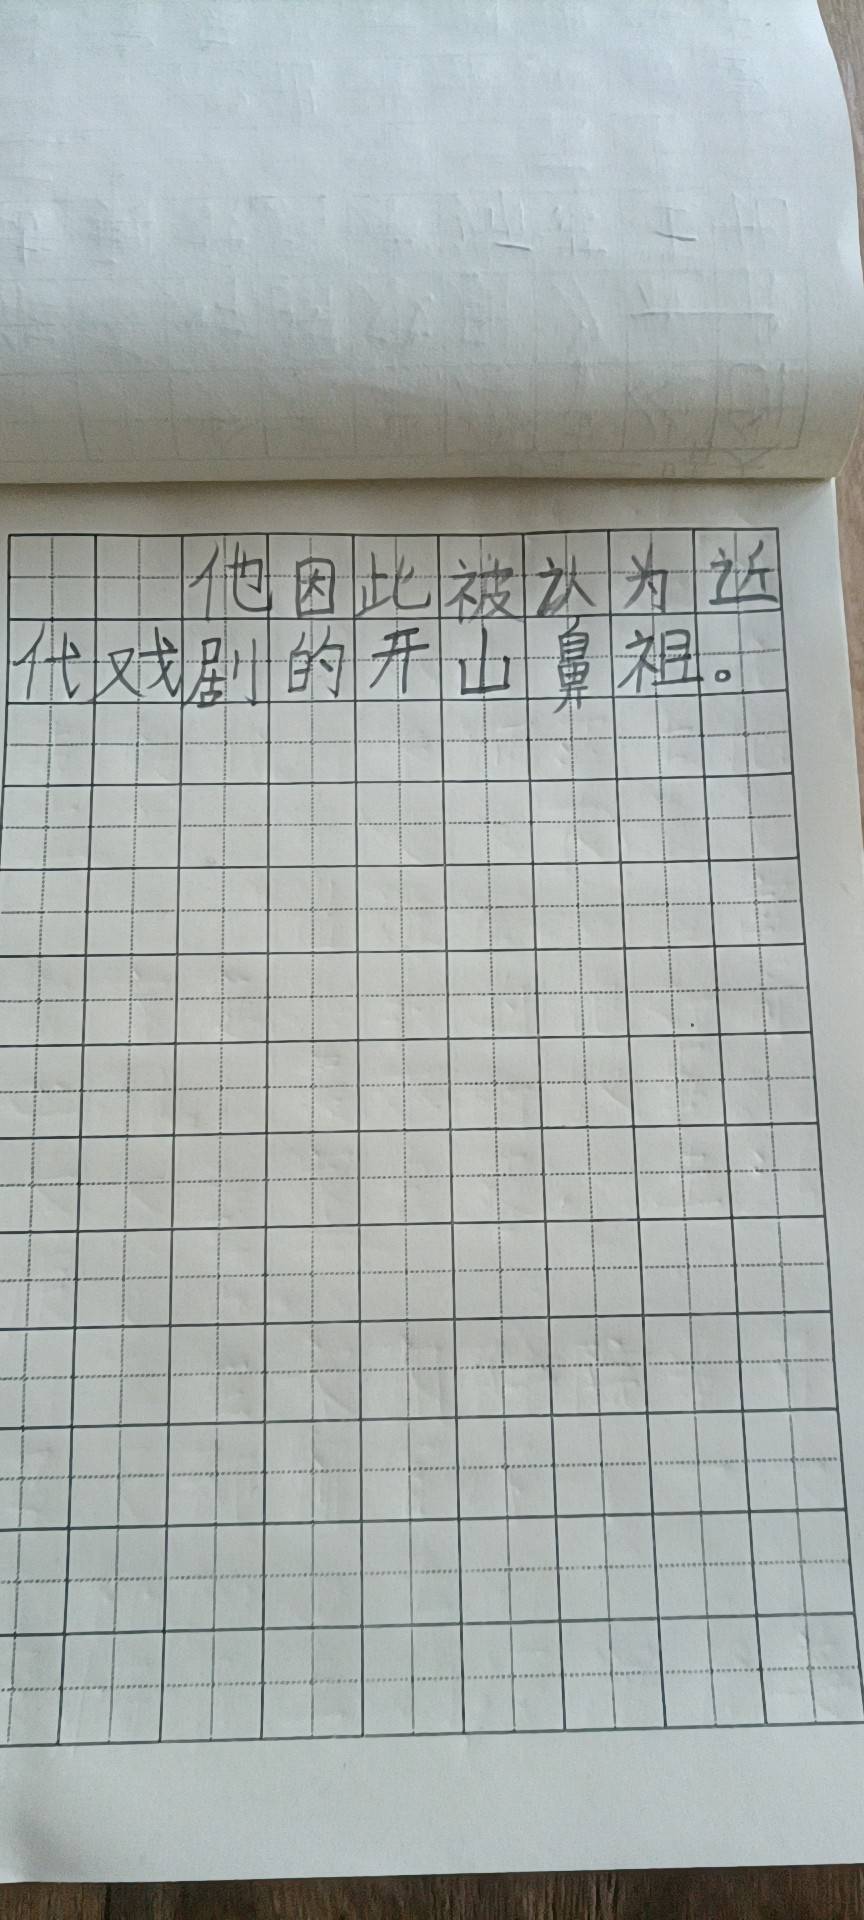 他因此被认为近
代戏剧的开山鼻祖。